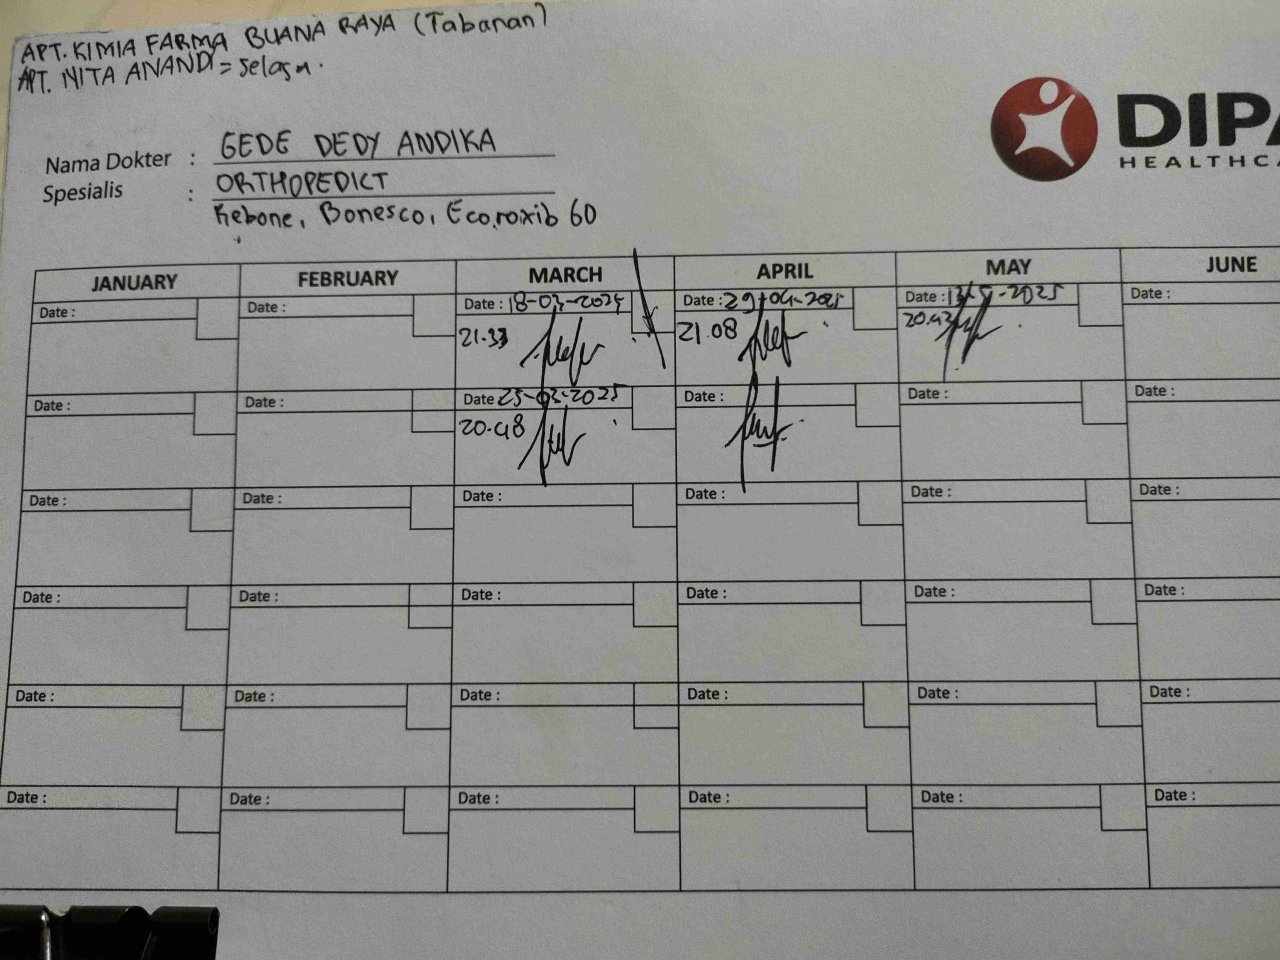 APT. KIMIA FARMA BUANA RAYA (Tabanan)
APT. NITA ANANDI = selasa.
DIPA
HEALTHCA
Nama Dokter : GEDE DEDY ANDIKA
Spesialis : ORTHOPEDICT
Rebone, Bonesco, Ecoroxib 60
JANUARY FEBRUARY MARCH APRIL MAY JUNE
Date : Date : Date : 18-03-2025 Date : 29-04-2025 Date : 13-5-2025 Date :
21.33 21.08 20.43
Date : Date : Date 25-03-2025 Date : Date : Date :
20.48
Date : Date : Date : Date : Date : Date :
Date : Date : Date : Date : Date : Date :
Date : Date : Date : Date : Date : Date :
Date : Date : Date : Date : Date : Date :